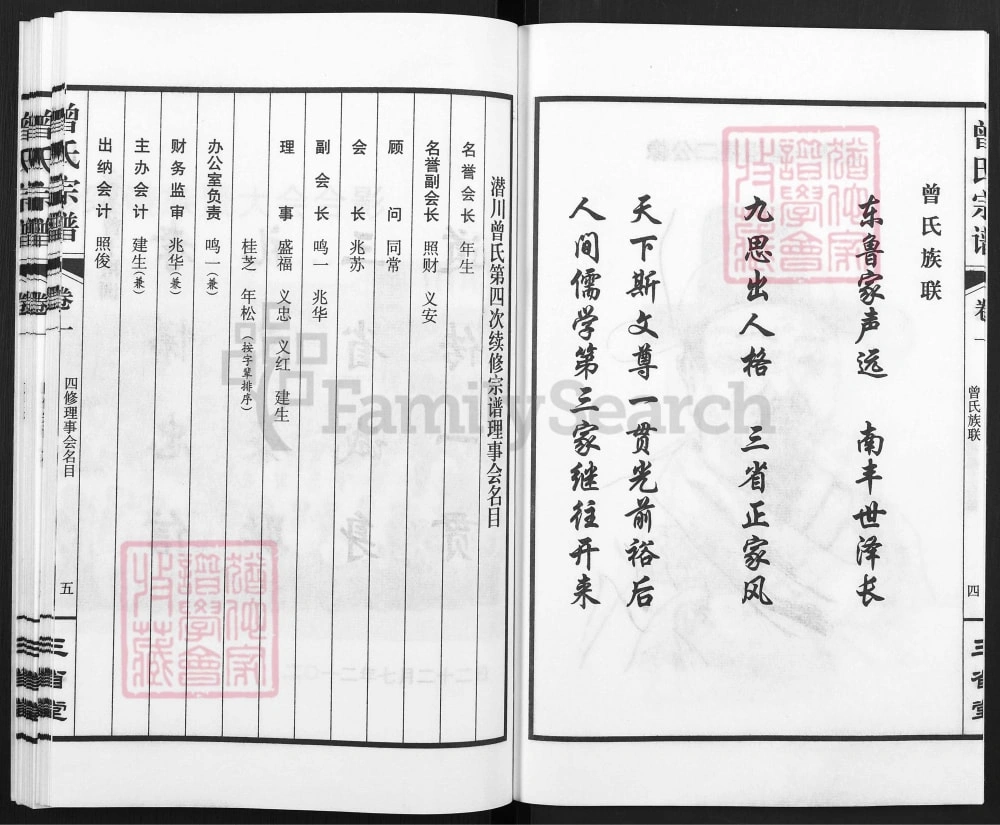 曾氏宗谱 卷一 曾氏族联 四 三省堂
曾氏族联
东鲁家声远 南丰世泽长
九思出人格 三省正家风
天下斯文尊一贯光前裕后
人间儒学第三家继往开来
潜川曾氏第四次续修宗谱理事会名目
名誉会长 年生
名誉副会长 照财 义安
顾问 同常
会长 兆苏
副会长 鸣一 兆华
理事 盛福 义忠 义红 建生
桂芝 年松（按字辈排序）
办公室负责 鸣一（兼）
财务监审 兆华（兼）
主办会计 建生（兼）
出纳会计 照俊
曾氏宗谱 卷一 四修理事会名目 五 三省堂
FamilySearch